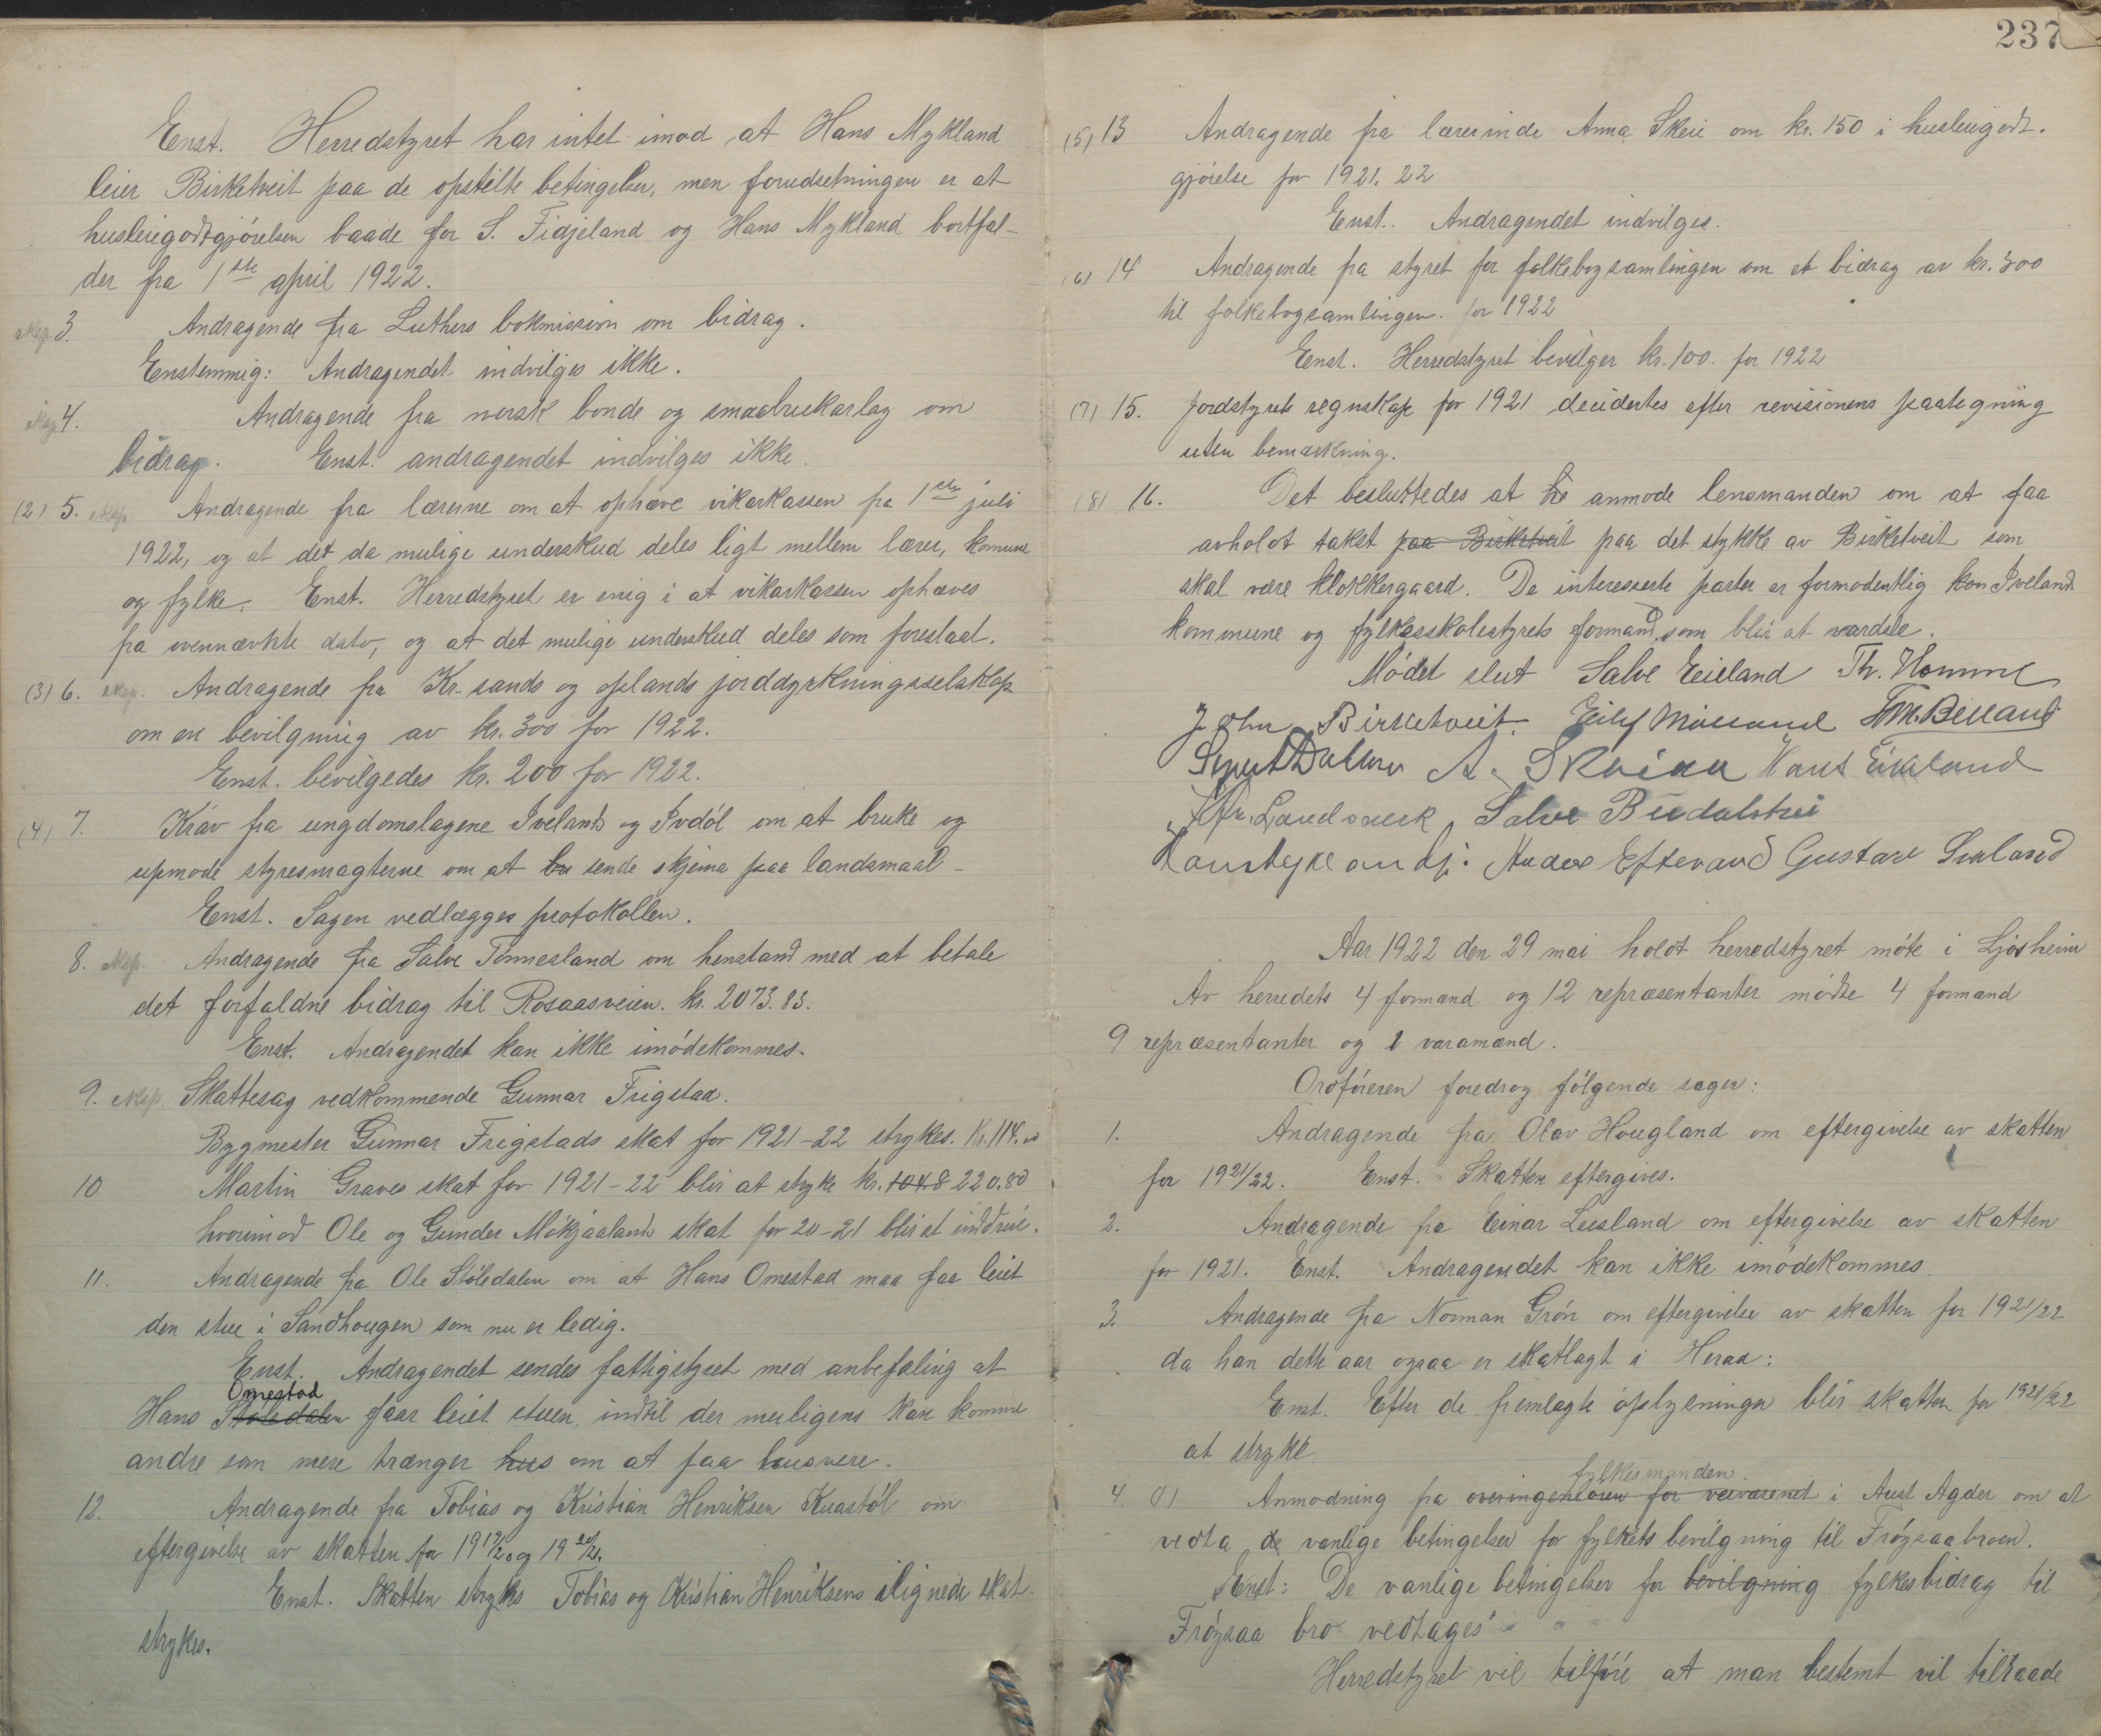 Enst. Herredstyret har intet imod at Hans Mykland
leier Birketveit paa de opstilte betingelser, men forudsetningen er at
husleiegodtgjörelsen baade for S. Fidjeland og Hans Mykland bortfal-
der fra 1ste april 1922.
eksp. 3. Andragende fra Luthers bokmission om bidrag.
Enstemmig: Andragendet indvilges ikke.
eksp. 4. Andragende fra norsk bonde og smaabrukarlag om
bidrag. Enst. andragendet indvilges ikke.
(2) 5. eksp. Andragende fra lærerne om at ophæve vikarkassen fra 1ste juli
1922, og at det da mulige underskud deles ligt mellem lærer, komune
og fylke. Enst. Herredstyret er enig i at vikarkassen ophæves
fra ovennævnte dato, og at det mulige underskud deles som foreslaat.
(3) 6. eksp. Andragende fra Kr-sands og oplands jorddyrkningsselskap
om en bevilgning av kr. 300 for 1922.
Enst. bevilgedes kr. 200 for 1922.
(4) 7. Krav fra ungdomslagene Iveland og Ivdöl om at bruke og
upmode styresmagterne om at sende skjema paa landsmaal-
Enst. Sagen vedlægges protokollen.
8. eksp. Andragende fra Salve Tönnesland om henstand med at betale
det forfaldne bidrag til Rosaasveien. kr. 2073.83.
Enst. Andragendet kan ikke imödekommes.
9. eksp. Skattesag vedkommende Gunnar Frigstad.
Bygmester Gunnar Frigstads skat for 1921-22 strykes. Kr. 114.00
10 Martin Graves skat for 1921-22 blir at stryke kr. 104.8 220.80
hvorimod Ole og Gunder Mökjaalands skat for 20-21 blir at inddrive.
11. Andragende fra Ole Stöledalen om at Hans Omestad maa faa leiet
den stue i Sandhougen som nu er ledig.
Enst. Andragendet sendes fattigstyret med anbefaling at
Omestad
Hans Stöledalen faar leiet stuen, indtil der muligens kan komme
andre som mere trænger hus om at faa husvere.
12. Andragende fra Tobias og Kristian Henriksen Kuastöl om
eftergivelse av skatten for 1919/20 og 1920/21.
Enst. Skatten strykes Tobias og Kristian Henriksens ilignede skat
strykes.
237
(5) 13 Andragende fra lærerinde Anna Skeie om kr. 150 i husleiegodt-
gjörelse for 1921.22
Enst. Andragendet indvilges.
(6) 14 Andragende fra styret for folkebogsamlingen om et bidrag av kr. 300
til folkebogsamlingen. for 1922
Enst. Herredstyret bevilger kr. 100. for 1922
(7) 15. Jordstyrets regnskap for 1921 decidertes efter revisionens paategning
uten bemærkning.
(8) 16. Det besluttedes at anmode lensmanden om at faa
avholdt takst paa Birketveit paa det stykke av Birketveit som
skal være klokkergaard. De interesserte parter er formodentlig kun Iveland
kommune og fylkesskolestyrets formand, som blir at vardsle.
Mödet slut Salve Eieland Th. Homme
John Birketveit. Eilef Mölland T. M. Belland
Sigurd Dallane A. Skaiaa Hans Eikland
Salve Birdalstrei
Anders Eftevand Gustav Sveland
Aar 1922 den 29 mai holdt herredstyret möte i Ljosheim
Av herredets 4 formænd og 12 repræsentanter mödte 4 formænd
9 repræsentanter og 1 varamænd.
Ordföreren foredrog fölgende sager:
1. Andragende fra Olav Hougland om eftergivelse av skatten
for 1921/22. Enst. Skatten eftergives.
2. Andragende fra Einar Lusland om eftergivelse av skatten
for 1921. Enst. Andragendet kan ikke imödekommes.
3. Andragende fra Norman Grön om eftergivelse av skatten for 1921/22
da han dette aar ogsaa er skatlagt i Herad:
Enst. Efter de fremlagte oplysninger blir skatten for 1921/22
at stryke.
fylkesmanden
4. Anmodning fra overingeniören for veivæsenet i Aust Agder om at
vedta de vanlige betingelser for fylkets bevilgning til Fröysaabroen.
Enst: De vanlige betingelser for bevilgning fylkesbidrag til
Fröysaa bro vedtages
Herredstyret vil tilföie at man bestemt vil tilraade